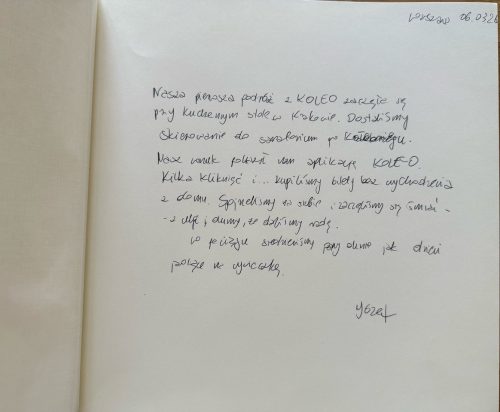 Warszawa 06.03.26
Nasza pierwsza podróż z KOLEO zaczęła się
przy kuchennym stole w Krakowie. Dostaliśmy
skierowanie do sanatorium po
Nasz wnuk polecił nam aplikację KOLEO.
Kilka kliknięć i... kupiliśmy bilety bez wychodzenia
z domu. Spojrzeliśmy na siebie i zaczęliśmy się śmiać -
- z ulgi i dumy, że daliśmy radę.
W pociągu siedzieliśmy przy oknie jak dzieci
jadące na wycieczkę.
Józef